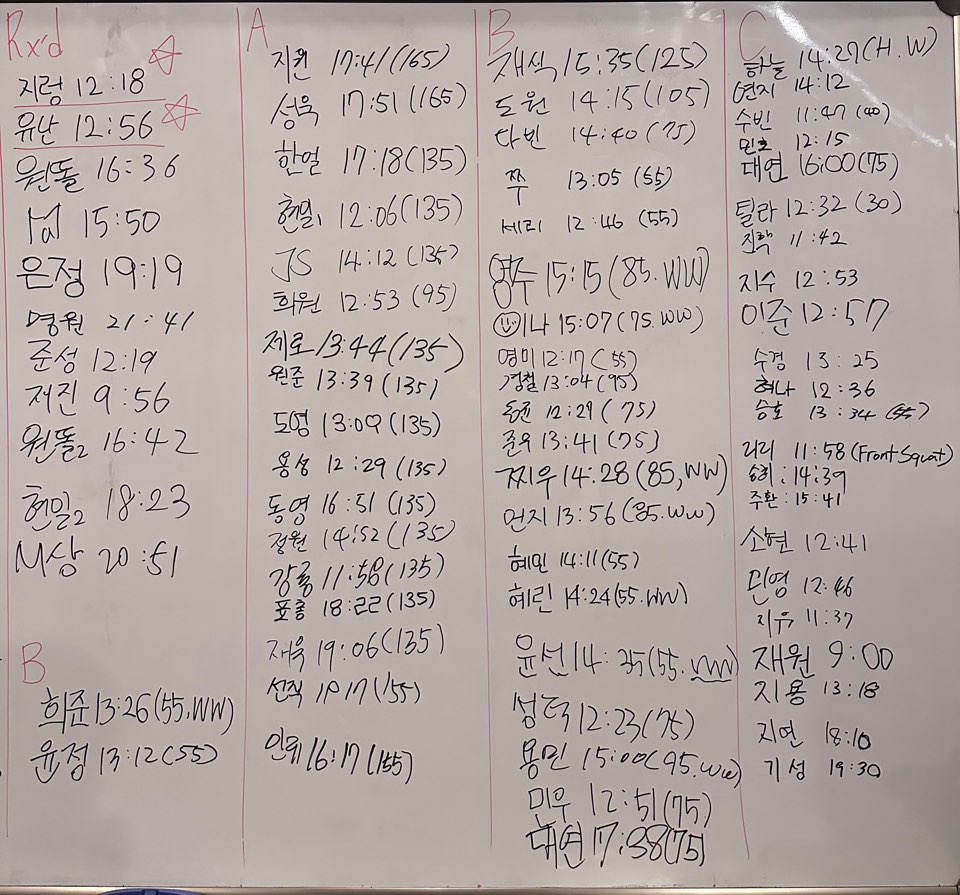 Rx'd
지렁 12:18
유난 12:56
원똘 16:36
섭 15:50
은정 19:19
명원 21:41
준성 12:19
저진 9:56
원똘2 16:42
현일2 18:23
M상 20:51
B
희준 13:26(55.WW)
윤정 13:12(55)
A
지원 17:41(165)
성욱 17:51(165)
한얼 17:18(135)
현일1 12:06(135)
JS 14:12(135)
희원 12:53(95)
제로 13:44(135)
원준 13:39(135)
도영 13:09(135)
용성 12:29(135)
동영 16:51(135)
정원 14:52(135)
강룡 11:58(135)
표홍 18:22(135)
재욱 19:06(135)
선직 (155)
16:17(155)
B
재식 15:35(125)
도원 14:15(105)
다빈 14:40(75)
쭈 13:05(55)
세리 12:46(55)
영수 15:15(85.WW)
이나 15:07(75.WW)
영미 12:17(55)
경철 13:04(95)
동균 12:29(75)
준우 13:41(75)
찌우 14:28(85,WW)
먼지 13:56(85.WW)
혜민 14:11(55)
혜린 14:24(55.WW)
윤선 14:35(55.WW)
성덕 12:23(75)
용민 15:00(95.WW)
민우 12:51(75)
대연 17:38(75)
C
하늘 14:27(H.W)
연지 14:12
수빈 11:47(40)
민호 12:15
대연 16:00(75)
틸라 12:32(30)
진학 11:42
지수 12:53
이준 12:57
수경 13:25
혀나 12:36
승호 13:34(55)
리리 11:58(Front Squat)
송희 14:39
주환 15:41
소현 12:41
민영 12:46
지유 11:37
재원 9:00
지용 13:18
지연 18:10
기성 19:30